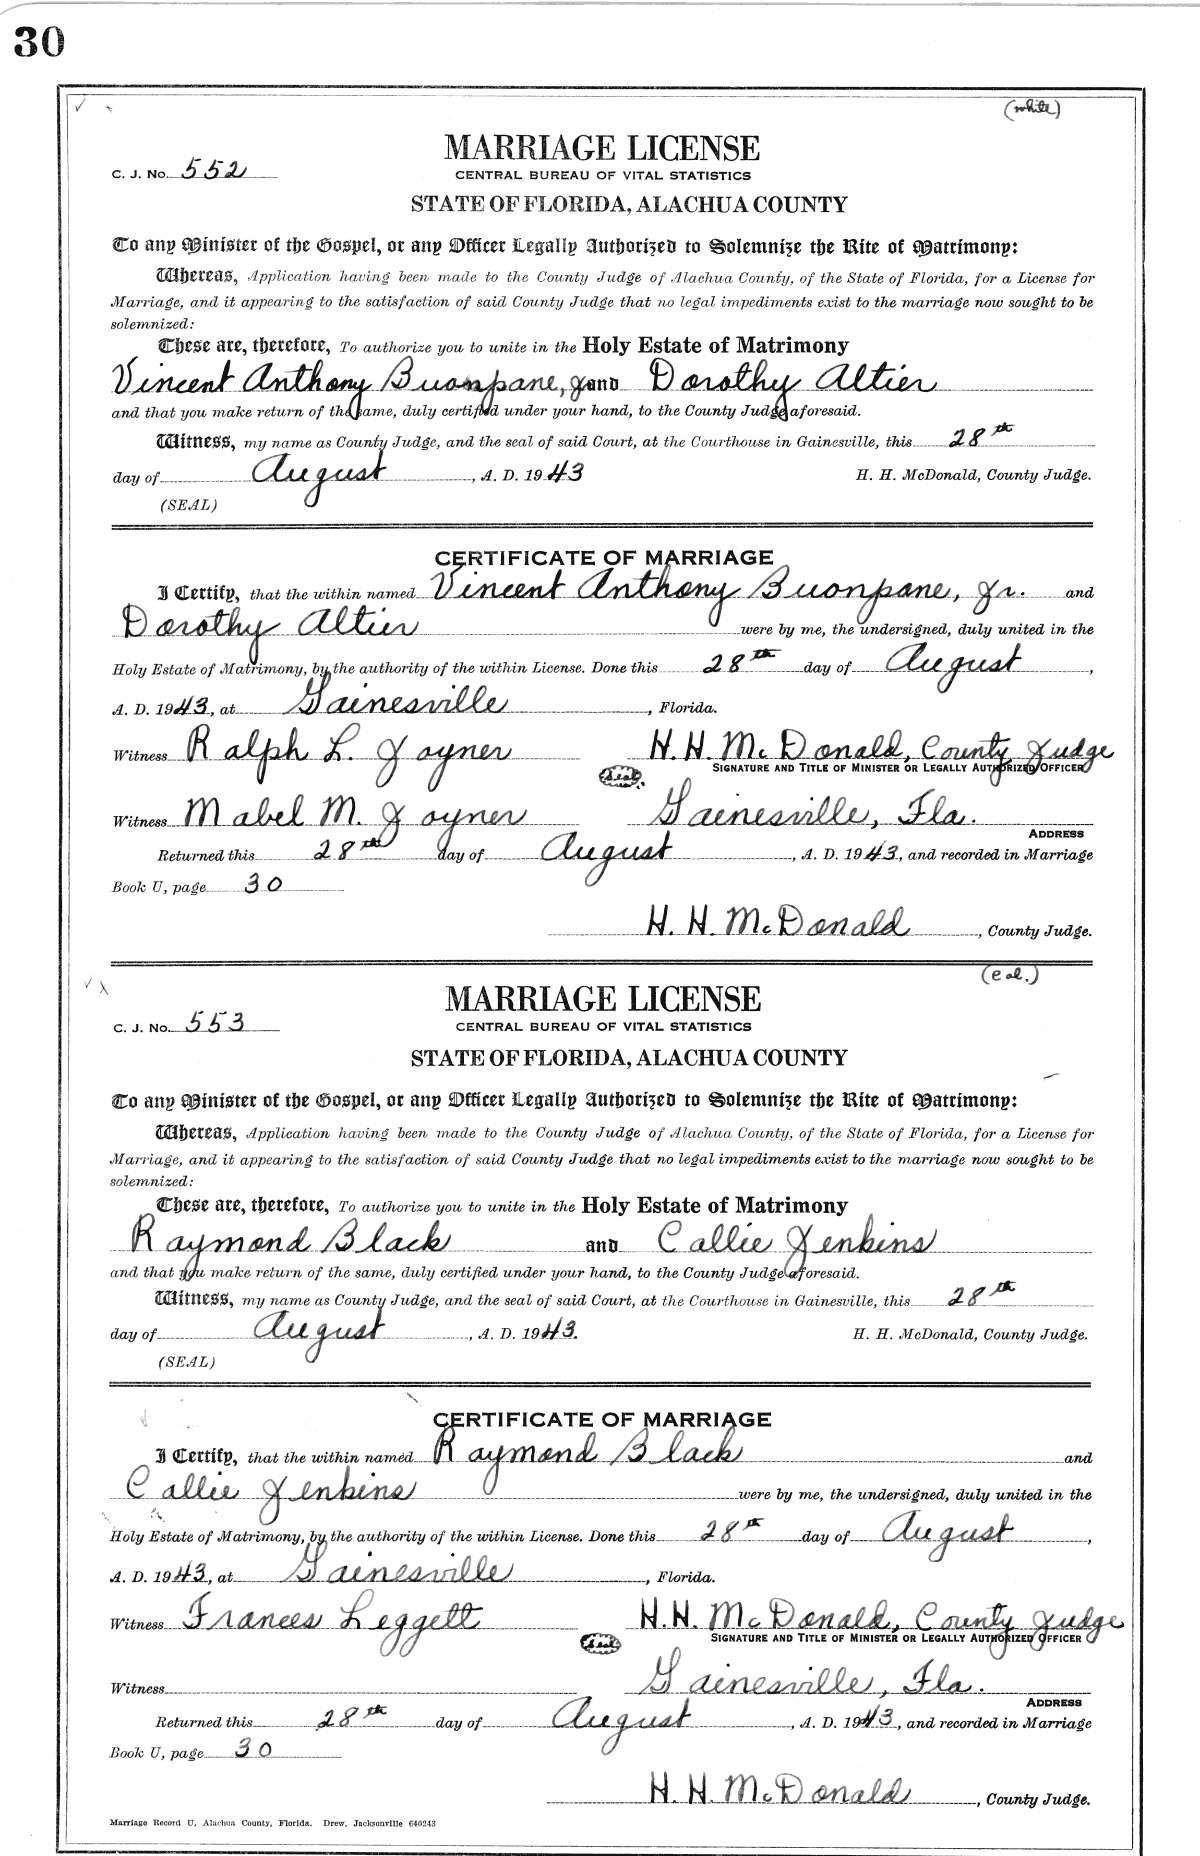 30
(white)
MARRIAGE LICENSE
C. J. No. 552
CENTRAL BUREAU OF VITAL STATISTICS
STATE OF FLORIDA, ALACHUA COUNTY
To any Minister of the Gospel, or any Officer Legally Authorized to Solemnize the Rite of Matrimony:
Whereas, Application having been made to the County Judge of Alachua County, of the State of Florida, for a License for
Marriage, and it appearing to the satisfaction of said County Judge that no legal impediments exist to the marriage now sought to be
solemnized:
These are, therefore, To authorize you to unite in the Holy Estate of Matrimony
Vincent Anthony Buonpane, Jr. and Dorothy Altier
and that you make return of the same, duly certified under your hand, to the County Judge aforesaid.
Witness, my name as County Judge, and the seal of said Court, at the Courthouse in Gainesville, this 28th
day of August, A. D. 1943 H. H. McDonald, County Judge.
(SEAL)
CERTIFICATE OF MARRIAGE
I Certify, that the within named Vincent Anthony Buonpane, Jr. and
Dorothy Altier were by me, the undersigned, duly united in the
Holy Estate of Matrimony, by the authority of the within License. Done this 28th day of August,
A. D. 1943, at Gainesville, Florida.
Witness Ralph L. Joyner H. H. McDonald, County Judge
Seal. SIGNATURE AND TITLE OF MINISTER OR LEGALLY AUTHORIZED OFFICER
Witness Mabel M. Joyner Gainesville, Fla.
ADDRESS
Returned this 28th day of August, A. D. 1943, and recorded in Marriage
Book U, page 30
H. H. McDonald, County Judge.
(col.)
MARRIAGE LICENSE
C. J. No. 553
CENTRAL BUREAU OF VITAL STATISTICS
STATE OF FLORIDA, ALACHUA COUNTY
To any Minister of the Gospel, or any Officer Legally Authorized to Solemnize the Rite of Matrimony:
Whereas, Application having been made to the County Judge of Alachua County, of the State of Florida, for a License for
Marriage, and it appearing to the satisfaction of said County Judge that no legal impediments exist to the marriage now sought to be
solemnized:
These are, therefore, To authorize you to unite in the Holy Estate of Matrimony
Raymond Black and Callie Jenkins
and that you make return of the same, duly certified under your hand, to the County Judge aforesaid.
Witness, my name as County Judge, and the seal of said Court, at the Courthouse in Gainesville, this 28th
day of August, A. D. 1943. H. H. McDonald, County Judge.
(SEAL)
CERTIFICATE OF MARRIAGE
I Certify, that the within named Raymond Black and
Callie Jenkins were by me, the undersigned, duly united in the
Holy Estate of Matrimony, by the authority of the within License. Done this 28th day of August,
A. D. 1943, at Gainesville, Florida.
Witness Frances Leggett H. H. McDonald, County Judge
Seal SIGNATURE AND TITLE OF MINISTER OR LEGALLY AUTHORIZED OFFICER
Witness Gainesville, Fla.
ADDRESS
Returned this 28th day of August, A. D. 1943, and recorded in Marriage
Book U, page 30
H. H. McDonald, County Judge.
Marriage Record U, Alachua County, Florida. Drew, Jacksonville 640243